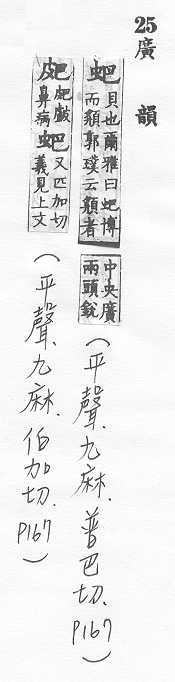 25 廣韻
蚆
貝也爾雅曰蚆博
而頯郭璞云頯者
中央廣
兩頭銳
(平聲.九麻.普巴切.P167)
鼻病
蚆
又匹加切
義見上文
(平聲.九麻.伯加切.P167)